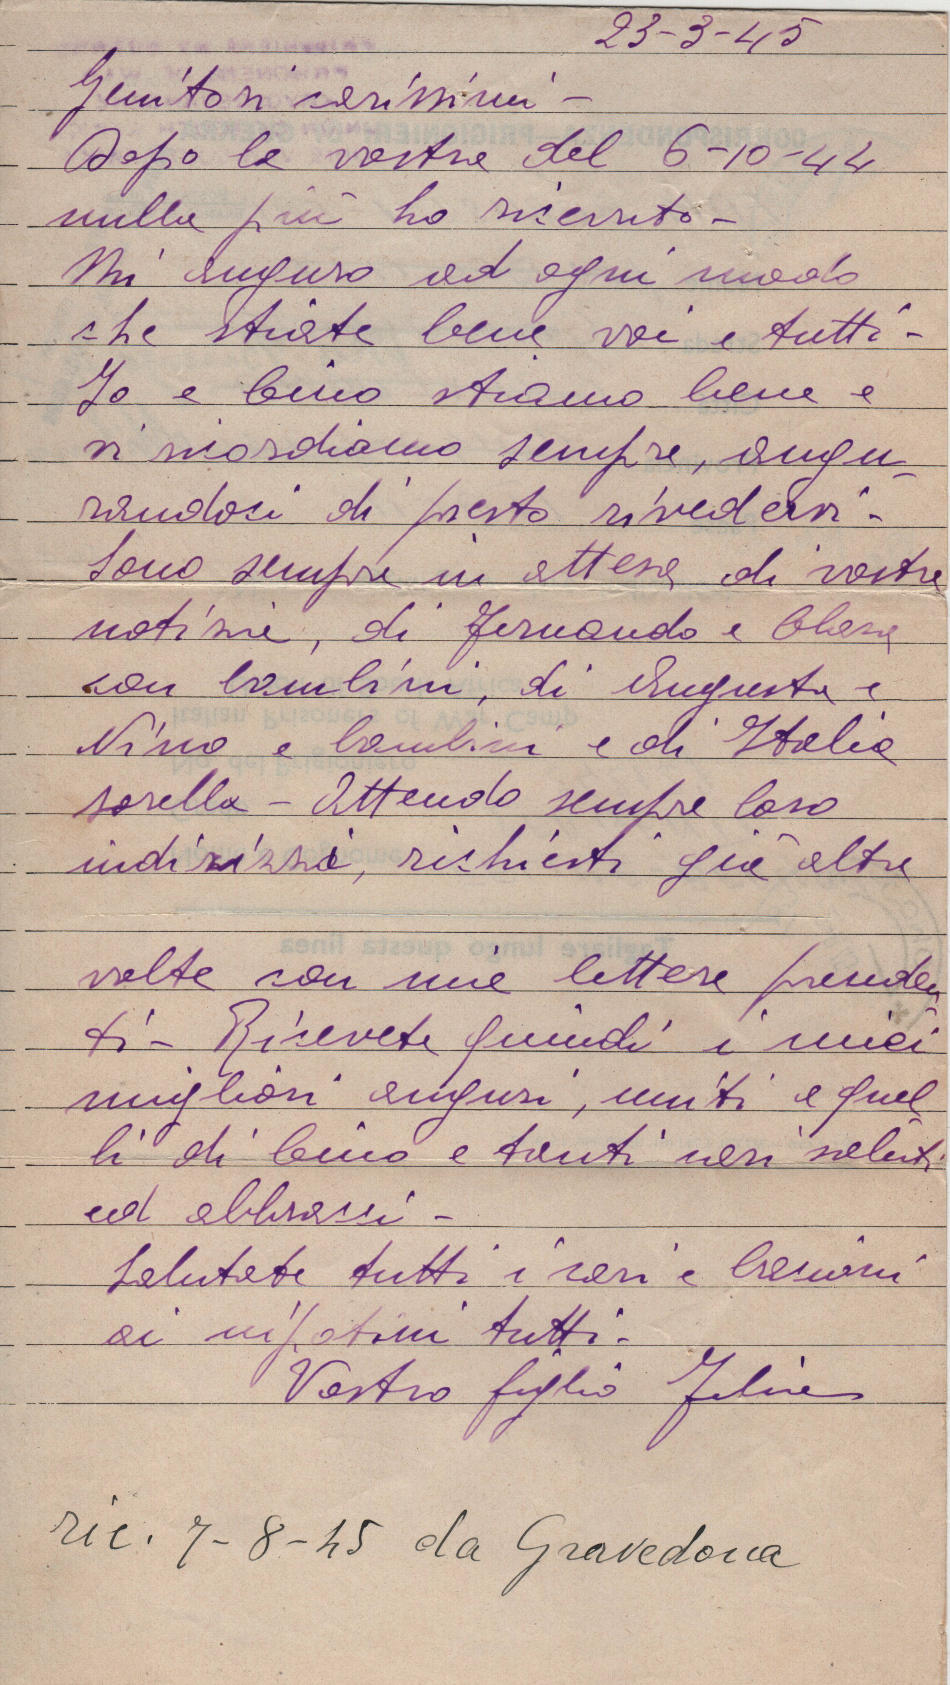 23-3-45
Genitori carissimi -
Dopo la vostra del 6-10-44
nulla più ho ricevuto -
Mi auguro ad ogni modo
che stiate bene voi e tutti -
Io e Gino stiamo bene e
vi ricordiamo sempre, augu-
randoci di presto rivedervi -
Sono sempre in attesa di vostre
notizie, di Fernando e
con bambini, di Augusta e
Nino e bambini e di Italia
sorella - Attendo sempre loro
indirizzi, richiesti già altre
volte con mie lettere preceden
ti - Ricevete quindi i miei
migliori auguri, uniti a quel-
li di Gino e tanti cari saluti
ed abbracci -
Salutate tutti i cari e bacioni
ai nipotini tutti -
Vostro figlio
ric. 7-8-45 da Gravedona
Italian Prisoners of War Camp
No. del Prigioniero
Tagliare lungo questa linea